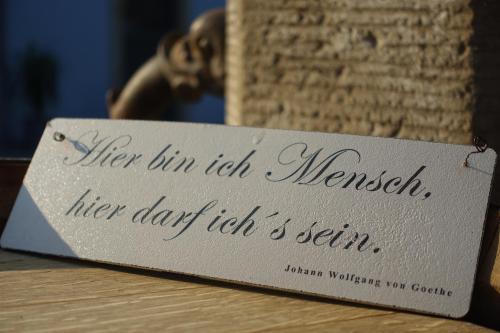 Hier bin ich Mensch,
hier darf ich´s sein.
Johann Wolfgang von Goethe